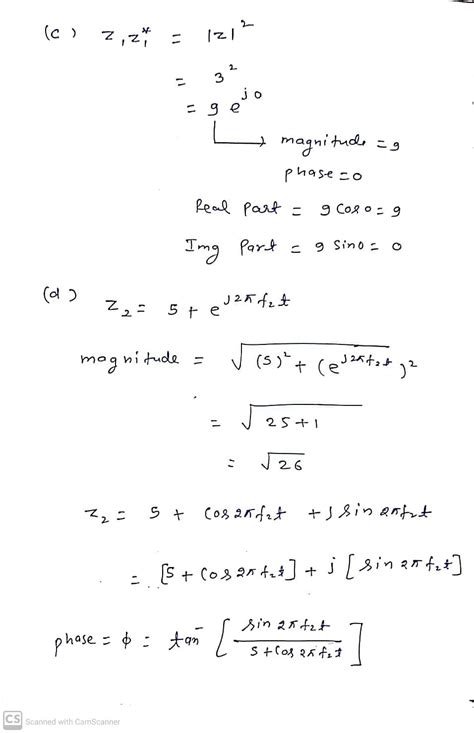 (c) z₁z₁* = |z|²
= 3²
= 9 e^{j0}
magnitude = 9
phase = 0
Real Part = 9 cos 0 = 9
Img Part = 9 sin 0 = 0
(d) z₂ = 5 + e^{j2πf₂t}
magnitude = √((5)² + (e^{j2πf₂t})²)
= √(25+1)
= √26
z₂ = 5 + cos 2πf₂t + j sin 2πf₂t
= [5 + cos 2πf₂t] + j [sin 2πf₂t]
phase = φ = tan⁻ [sin 2πf₂t / 5 + cos 2πf₂t]
CS Scanned with CamScanner